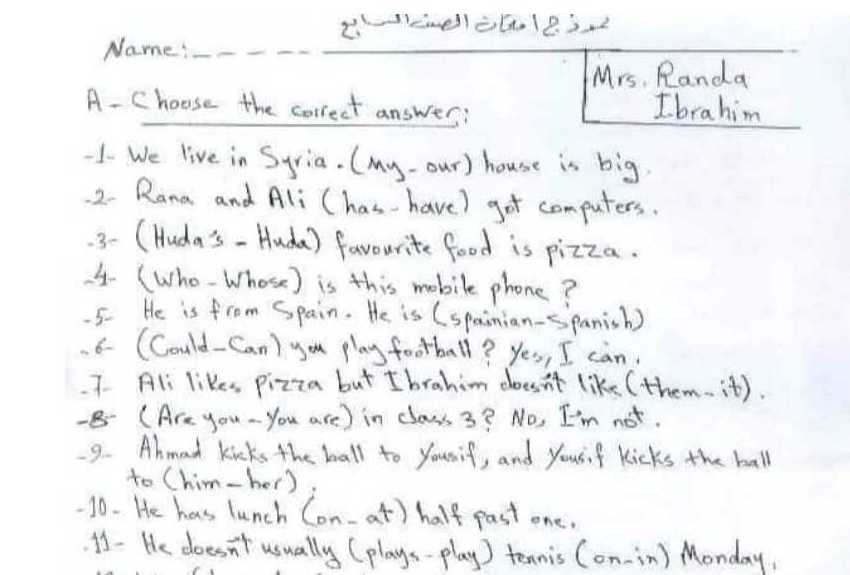 نموذج امتحان الصف السابع
Name:_ _ _ _ _
Mrs. Randa
Ibrahim
A - Choose the correct answer:
-1- We live in Syria. (My - our) house is big.
-2- Rana and Ali (has - have) got computers.
-3- (Huda's - Huda) favourite food is pizza.
-4- (Who - Whose) is this mobile phone?
-5- He is from Spain. He is (spainian - Spanish)
-6- (Could - Can) you play football? Yes, I can.
-7- Ali likes pizza but Ibrahim doesn't like (them - it).
-8- (Are you - You are) in class 3? No, I'm not.
-9- Ahmad kicks the ball to Yousif, and Yousif kicks the ball
to (him - her).
-10- He has lunch (on - at) half past one.
-11- He doesn't usually (plays - play) tennis (on - in) Monday.